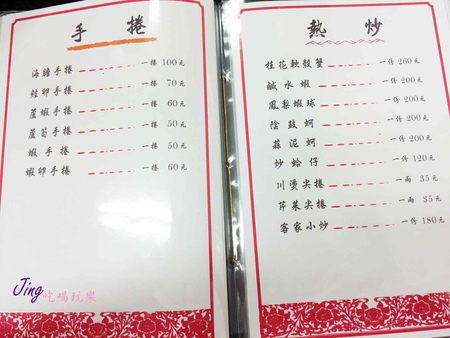 手捲
海膽手捲 一捲100元
鮭卵手捲 一捲 70元
蘆蝦手捲 一捲 60元
蘆筍手捲 一捲 50元
蝦手捲 一捲 50元
蝦卵手捲 一捲 60元
Jing吃喝玩樂
熱炒
桂花軟殼蟹 一份260元
鹹水蝦 一份200元
鳳梨蝦球 一份200元
陰鼓蚵 一份200元
蒜泥蚵 一份200元
炒蛤仔 一份120元
川燙尖捲 一兩 35元
芹菜尖捲 一兩 35元
客家小炒 一份180元